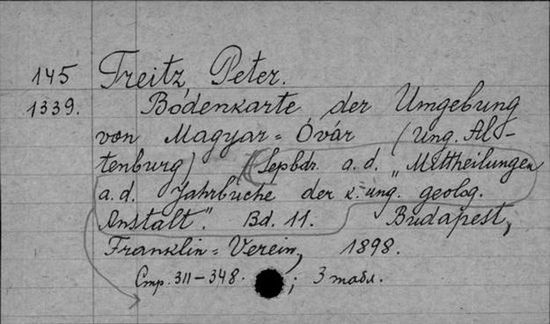 145 Treitz, Peter.
1339. Bodenkarte der Umgebung
von Magyar=Óvár (Ung. Al-
tenburg) (Sepbdr. a. d. "Mittheilungen
a. d. Jahrbuche der k. ung. geolog.
Anstalt". Bd. 11. Budapest,
Franklin=Verein, 1898.
Стр. 311-348. ; 3 табл.